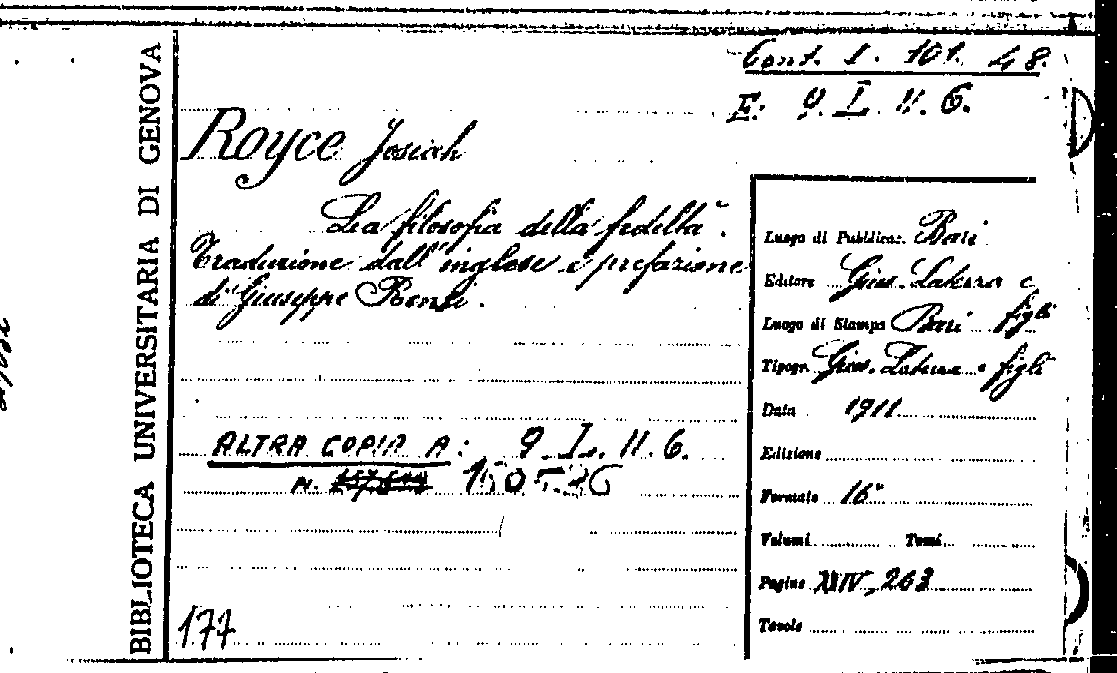 BIBLIOTECA UNIVERSITARIA DI GENOVA
Cont. I. 101. 48.
E: 9. I. 11. 6.
Royce Josiah
La filosofia della fedeltà.
Traduzione dall'inglese e prefazione
di Giuseppe Rensi.
ALTRA COPIA A: 9. I. 11. 6.
N. 160526
177
Luogo di Pubblicaz. Bari
Editore Gius. Laterza e figli
Luogo di Stampa Bari
Tipogr. Gius. Laterza e figli
Data 1911
Edizione
Formato 16°
Volumi Tomi
Pagine XXIV-263
Tavole